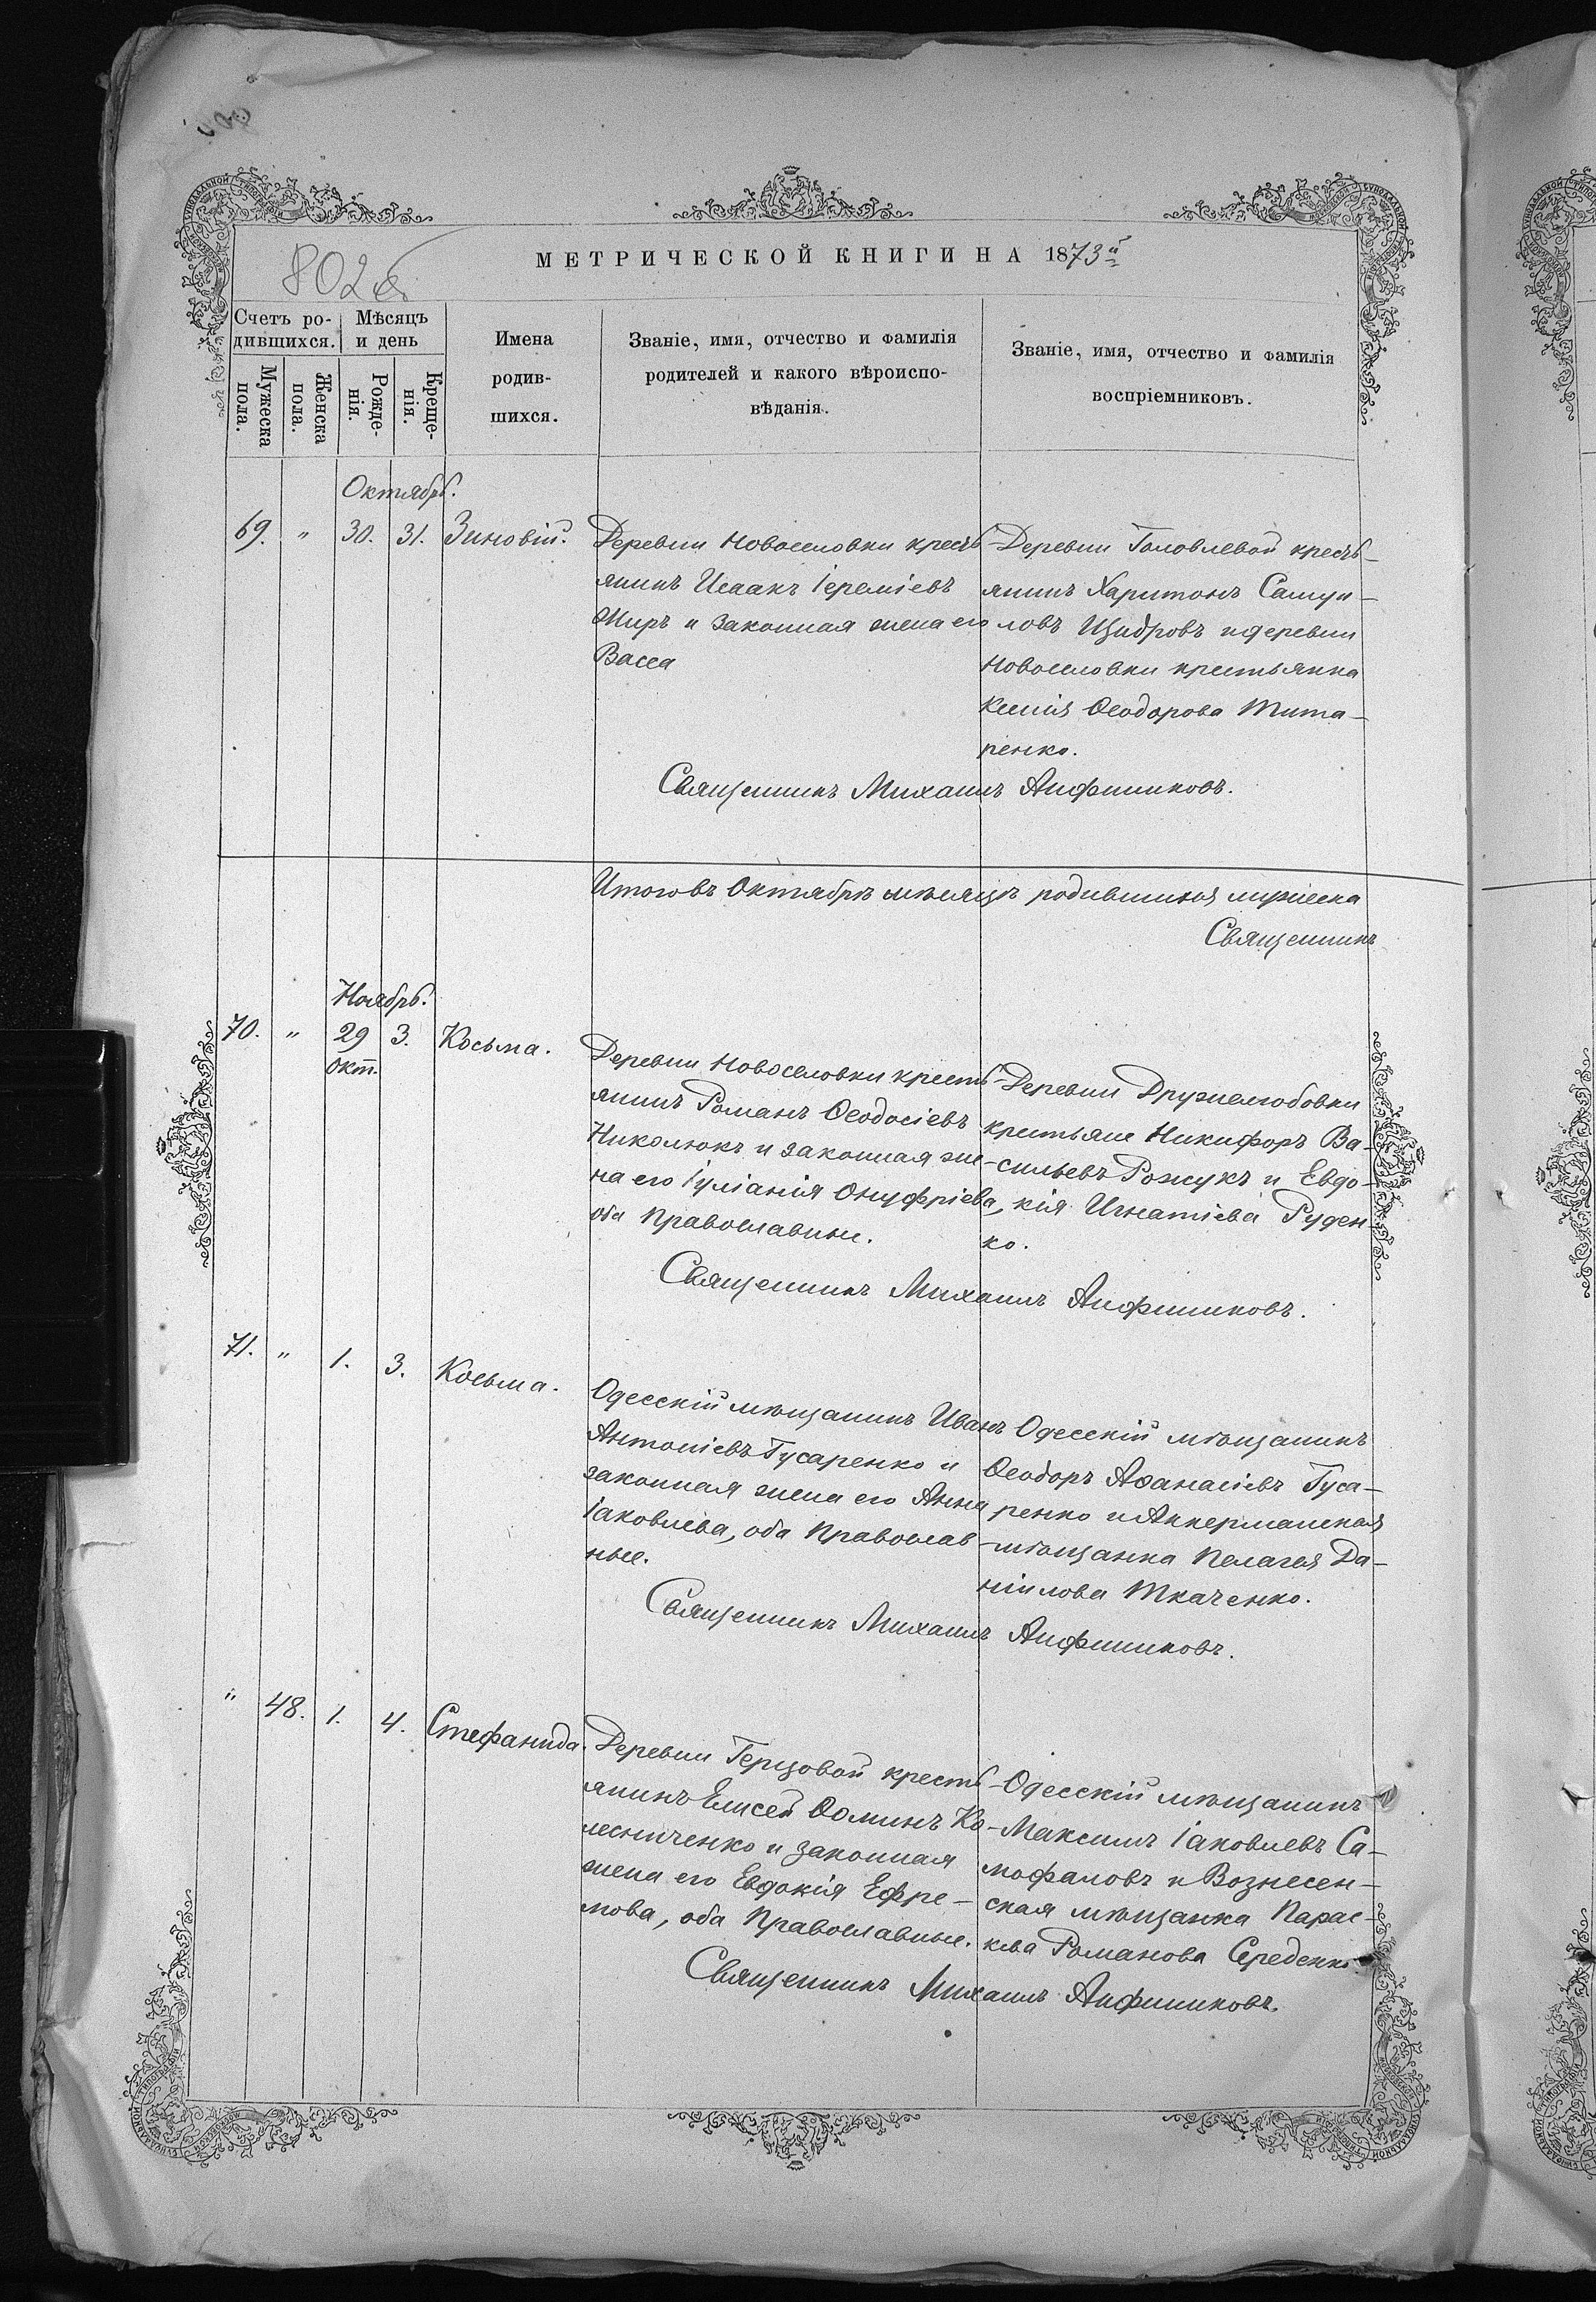 802 об
МЕТРИЧЕСКОЙ КНИГИ НА 1873й
Счетъ ро-
дившихся.
Мѣсяцъ
и день
Мужеска
пола.
Женска
пола.
Рожде-
нія.
Креще-
нія.
Имена
родив-
шихся.
Званіе, имя, отчество и фамилія
родителей и какого вѣроиспо-
вѣданія.
Званіе, имя, отчество и фамилія
воспріемниковъ.
Октябрь.
69. " 30. 31. Зиновій.
Деревни Новоселовки кресть
янинъ Исаакъ Іереміевъ
Жиръ и законная жена его
Васса
Деревни Головлевой кресть-
янинъ Харитонъ Самуи-
ловъ Щидровъ и деревни
Новоселовки крестьянка
Ксенія Ѳеодорова Тита-
ренко.
Священникъ Михаилъ Анфиниковъ.
Итого въ Октябрѣ мѣсяцѣ родившихся мужеска
Священникъ
Ноябрь.
70. " 29 3. Косьма.
окт.
Деревни Новоселовки кресть-
янинъ Романъ Ѳеодосіевъ
Николюкъ и законная же-
на его Іуліанія Онуфріева,
оба Православные.
Деревни Дружелюбовки
крестьяне Никифоръ Ва-
сильевъ Рожукъ и Евдо-
кія Игнатіева Руден-
ко.
Священникъ Михаилъ Анфиниковъ.
71. " 1. 3. Косьма.
Одесскій мѣщанинъ Иванъ
Антоніевъ Гусаренко и
законная жена его Анна
Іаковлева, оба Православ-
ные.
Одесскій мѣщанинъ
Ѳеодоръ Аѳанасіевъ Гуса-
ренко и Аккерманская
мѣщанка Пелагея Да-
ніилова Ткаченко.
Священникъ Михаилъ Анфиниковъ.
" 48. 1. 4. Стефанида.
Деревни Герцовой кресть-
янинъ Елисей Ѳоминъ Ко-
лесниченко и законная
жена его Евдокія Ефре-
мова, оба Православные.
Одесскій мѣщанинъ
Максимъ Іаковлевъ Са-
мофаловъ и Вознесен-
ская мѣщанка Парас-
кева Романова Середенко.
Священникъ Михаилъ Анфиниковъ.